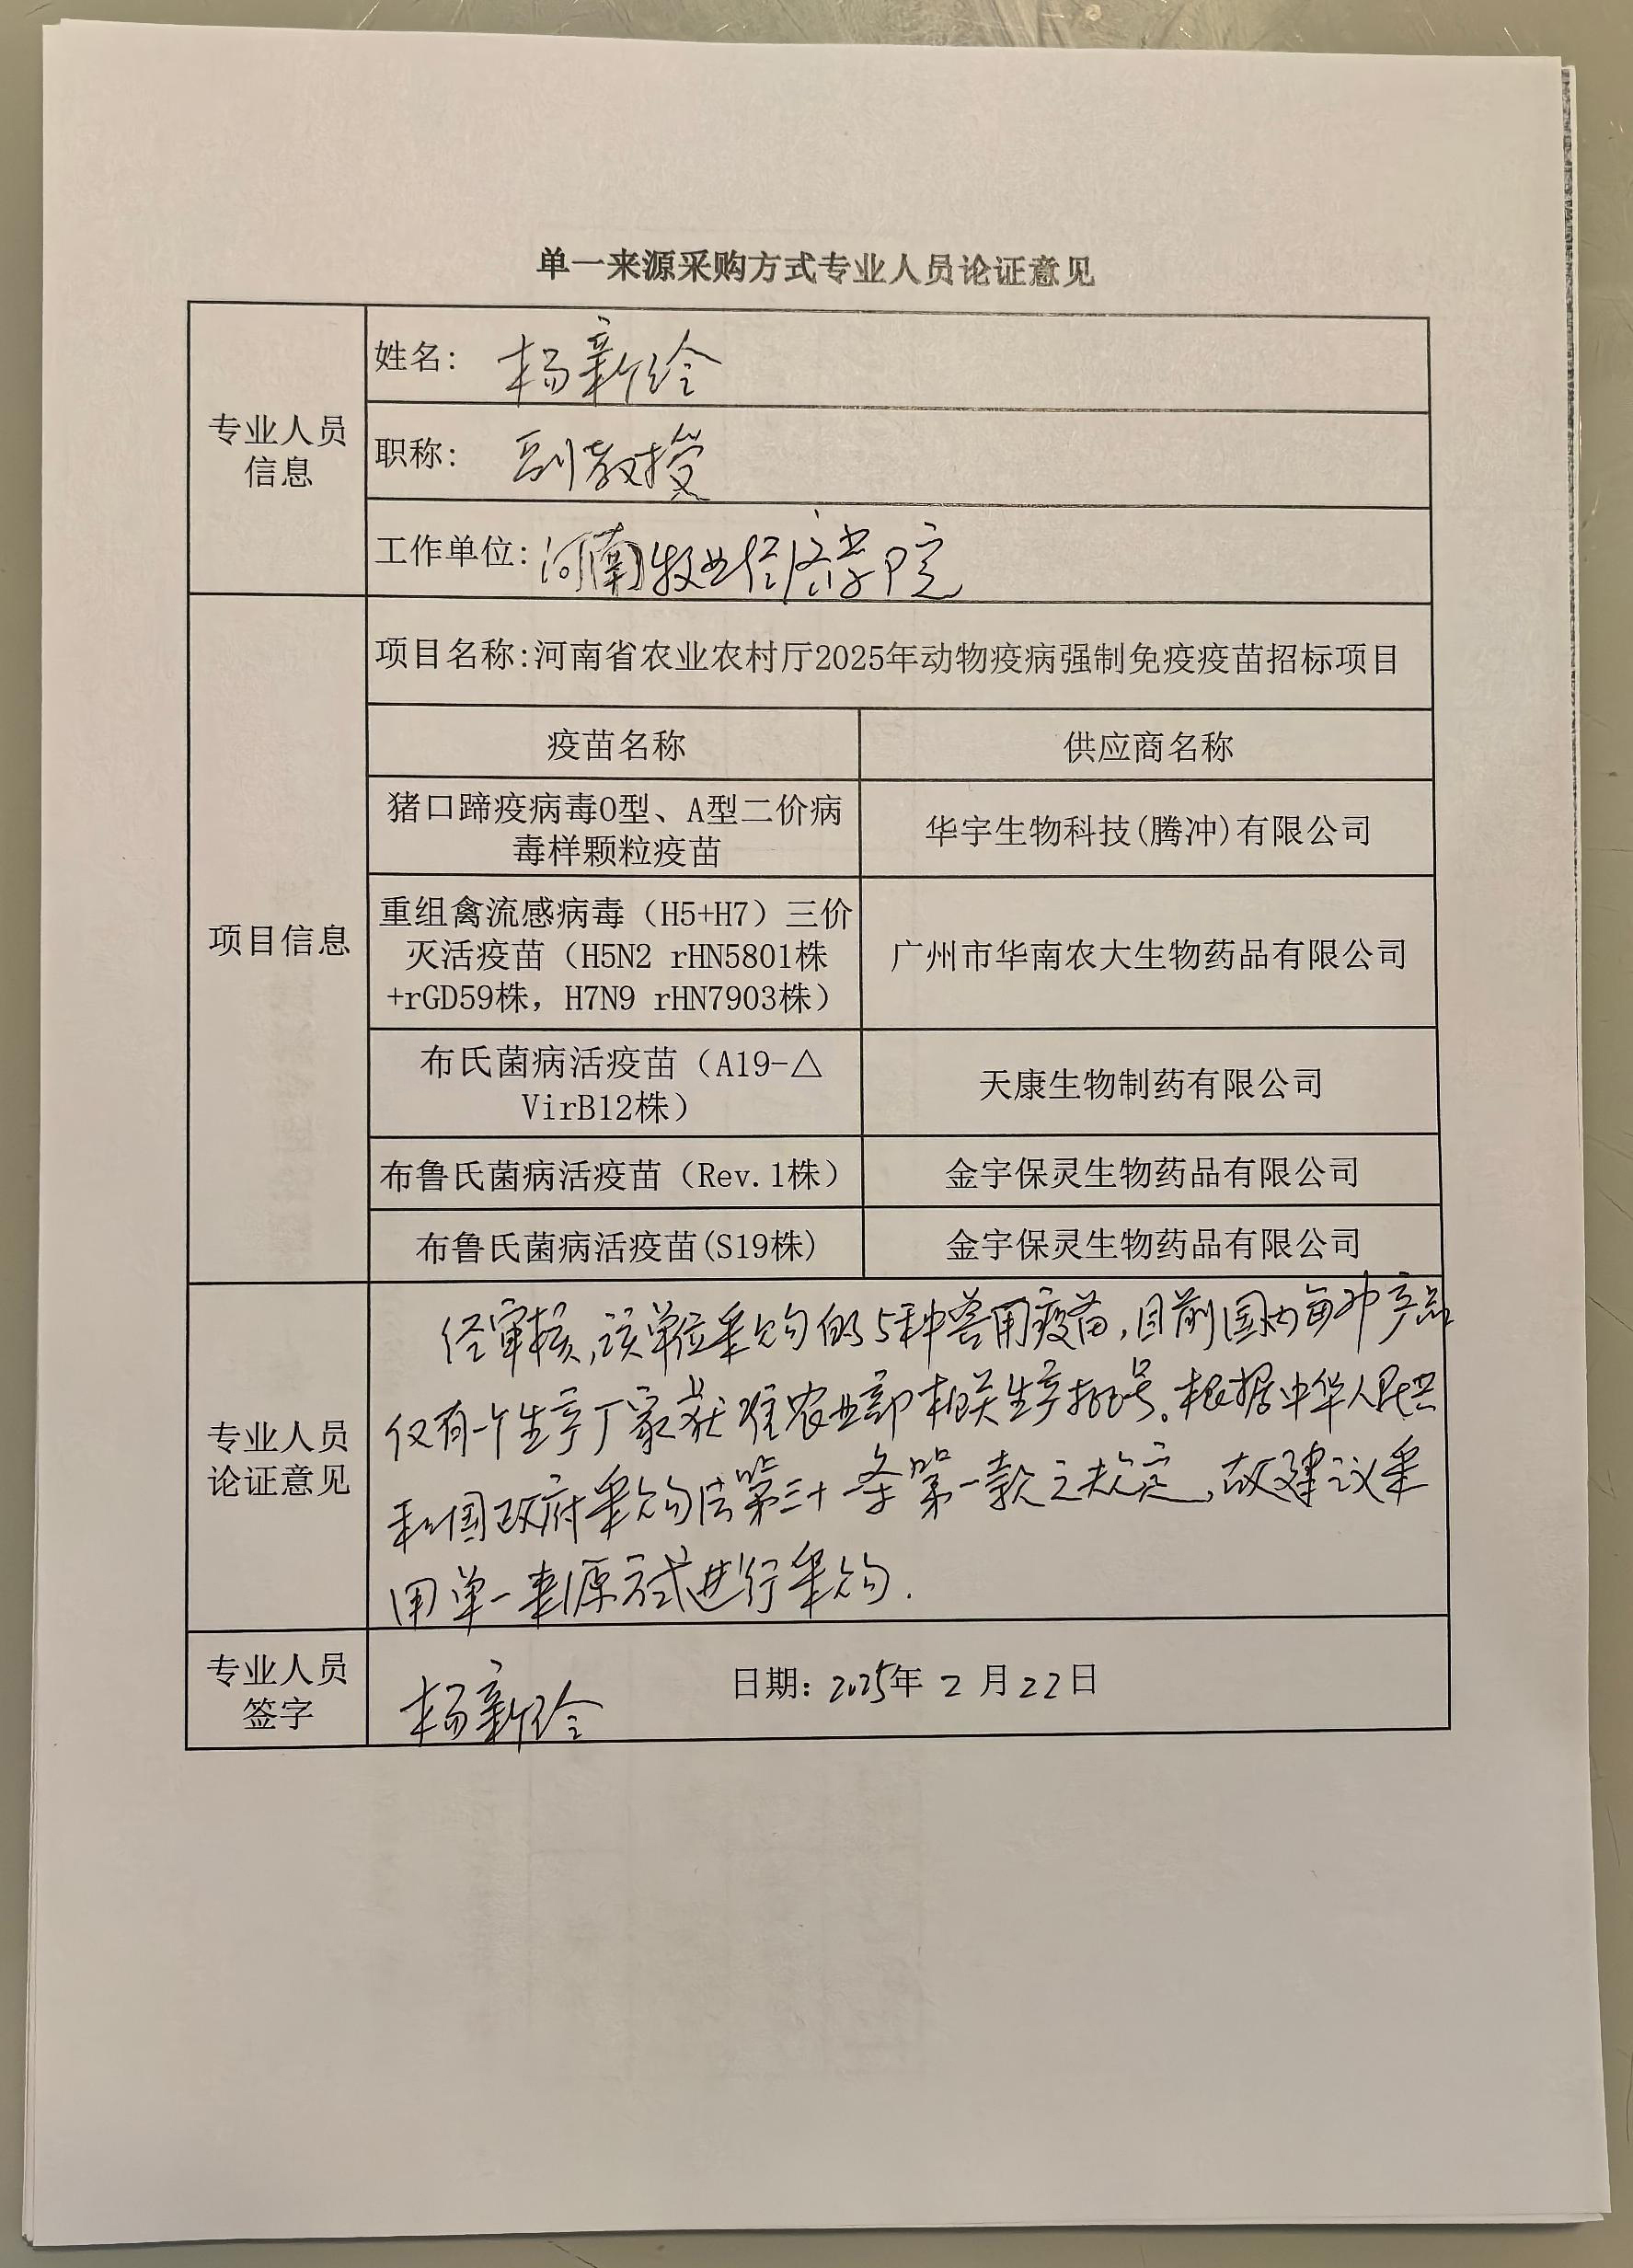 单一来源采购方式专业人员论证意见
专业人员
信息
姓名: 杨新玲
职称: 副教授
工作单位:河南牧业经济学院
项目信息
项目名称:河南省农业农村厅2025年动物疫病强制免疫疫苗招标项目
疫苗名称 供应商名称
猪口蹄疫病毒O型、A型二价病
毒样颗粒疫苗
华宇生物科技(腾冲)有限公司
重组禽流感病毒（H5+H7）三价
灭活疫苗（H5N2 rHN5801株
+rGD59株，H7N9 rHN7903株）
广州市华南农大生物药品有限公司
布氏菌病活疫苗（A19-△
VirB12株）
天康生物制药有限公司
布鲁氏菌病活疫苗（Rev.1株） 金宇保灵生物药品有限公司
布鲁氏菌病活疫苗(S19株) 金宇保灵生物药品有限公司
专业人员
论证意见
经审核,该单位采购的5种兽用疫苗,目前国内每种产品
仅有一个生产厂家获准农业部相关生产批号。根据中华人民共
和国政府采购法第三十一条第一款之规定,故建议采
用单一来源方式进行采购.
专业人员
签字
杨新玲 日期: 2025年 2 月 22日